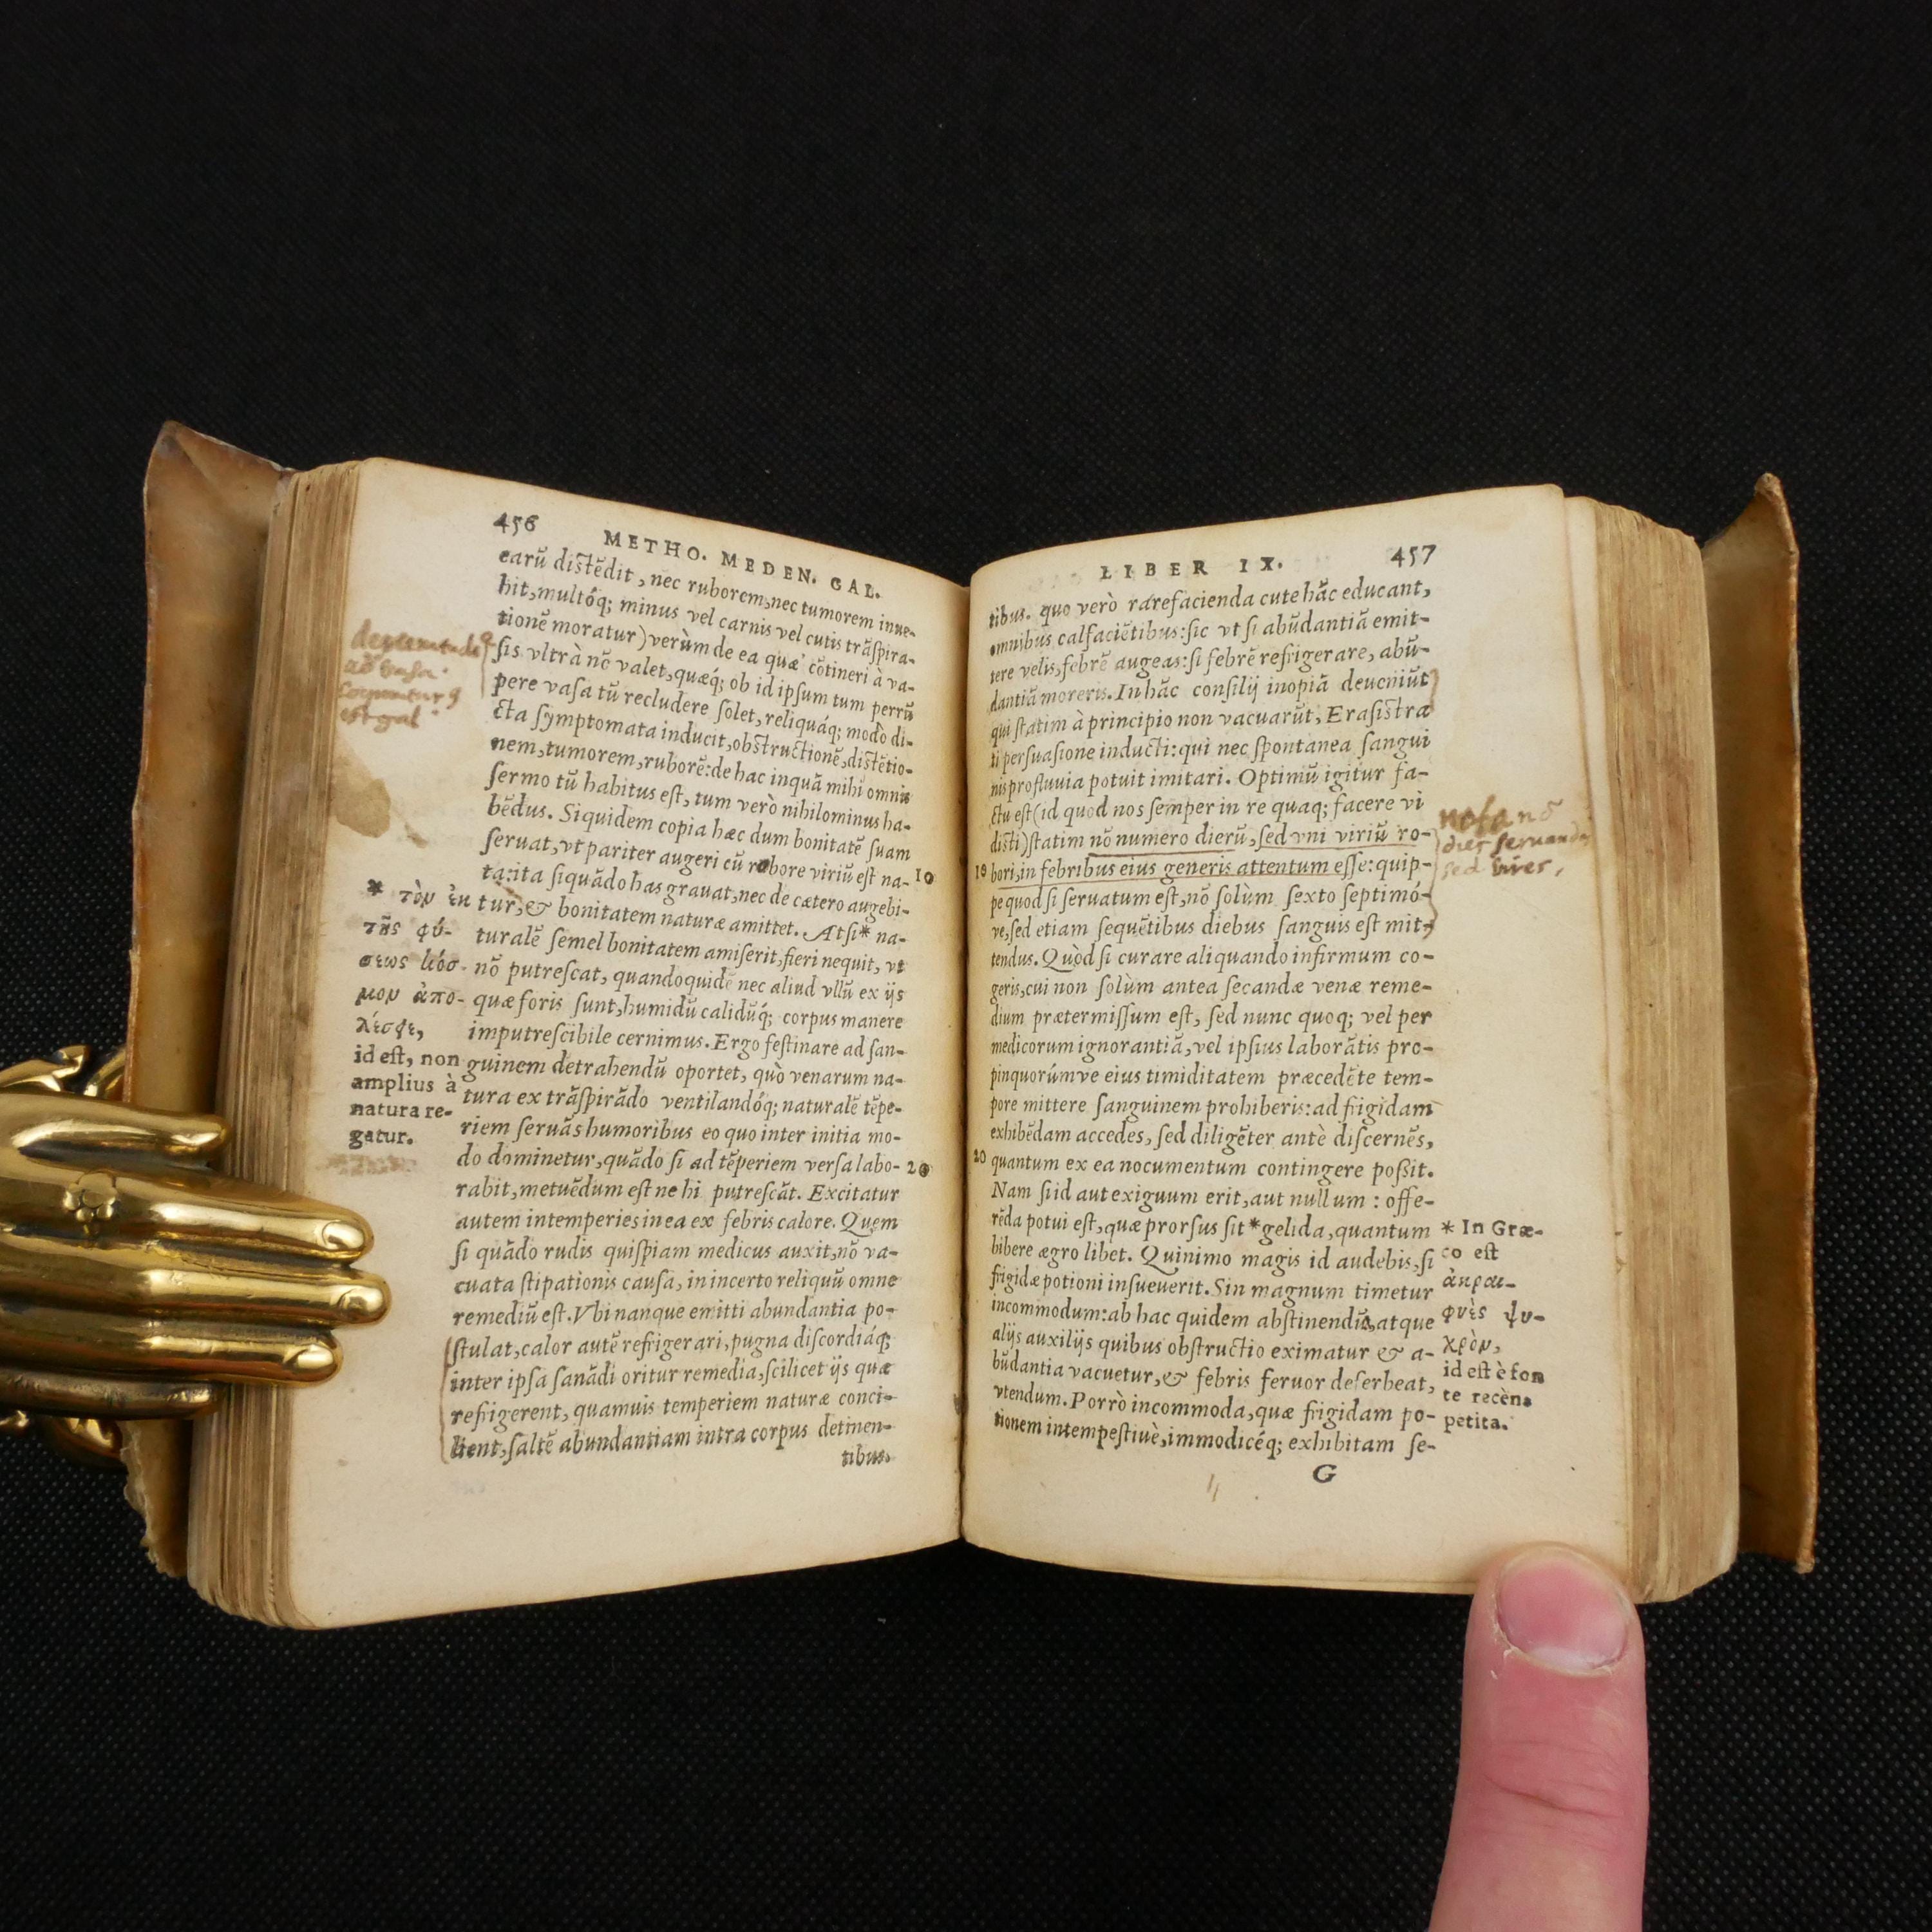 456 METHO. MEDEN. GAL.
earū diſtēdit, nec ruborem, nec tumorem inue-
hit, multóq; minus vel carnis vel cutis trāſpira-
tionē moratur) verùm de ea quæ cōtineri à va-
ſis vltrà nō valet, quæq́; ob id ipſum tum perrū
pere vaſa tū recludere ſolet, reliquáq; modò di-
cta ſymptomata inducit, obſtructionē, diſtētio-
nem, tumorem, ruborē: de hac inquā mihi omnis
ſermo tū habitus eſt, tum verò nihilominus ha-
bēdus. Siquidem copia hæc dum bonitatē ſuam
ſeruat, vt pariter augeri cū robore viriū eſt na- 10
ta: ita ſiquādo has grauat, nec de cætero augebi-
tur, & bonitatem naturæ amittet. At ſi * na-
turalē ſemel bonitatem amiſerit, fieri nequit, vt
nō putreſcat, quandoquidē nec aliud vllū ex ijs
quæ foris ſunt, humidū calidúq; corpus manere
imputreſcibile cernimus. Ergo feſtinare ad ſan-
guinem detrahendū oportet, quò venarum na-
tura ex trāſpirādo ventilandóq; naturalē tēpe-
riem ſeruās humoribus eo quo inter initia mo-
do dominetur, quādo ſi ad tēperiem verſa labo- 20
rabit, metuēdum eſt ne hi putreſcāt. Excitatur
autem intemperies in ea ex febris calore. Quem
ſi quādo rudis quiſpiam medicus auxit, nō va-
cuata ſtipationis cauſa, in incerto reliquū omne
remediū eſt. Vbi nanque emitti abundantia po-
ſtulat, calor autē refrigerari, pugna diſcordiáq;
inter ipſa ſanādi oritur remedia, ſcilicet ijs quæ
refrigerent, quamuis temperiem naturæ conci-
lient, ſaltē abundantiam intra corpus detinen-
tibus.
ad vasa
est gal
* τὸν ἐκ
τῆς φύ-
σεως κόσ-
μον ἀπο-
λέσῃ,
id eſt, non
amplius à
natura re-
gatur.
LIBER IX. 457
tibus. quo verò rarefacienda cute hāc educant,
omnibus calfaciētibus: ſic vt ſi abūdantiā emit-
tere velis, febrē augeas: ſi febrē refrigerare, abū-
dantiā moreris. In hāc conſilij inopiā deueniūt
qui ſtatim à principio non vacuarūt, Eraſiſtra
ti perſuaſione inducti: qui nec ſpontanea ſangui
nis profluuia potuit imitari. Optimū igitur fa-
ctu eſt (id quod nos ſemper in re quaq; facere vi
diſti) ſtatim nō numero dierū, ſed vni viriū ro-
10 bori, in febribus eius generis attentum eſſe: quip-
pe quod ſi ſeruatum eſt, nō ſolùm ſexto ſeptimó-
ve, ſed etiam ſequētibus diebus ſanguis eſt mit-
tendus. Quòd ſi curare aliquando infirmum co-
geris, cui non ſolùm antea ſecandæ venæ reme-
dium prætermiſſum eſt, ſed nunc quoq; vel per
medicorum ignorantiā, vel ipſius laborātis pro-
pinquorúmve eius timiditatem præcedēte tem-
pore mittere ſanguinem prohiberis: ad frigidam
exhibēdam accedes, ſed diligēter antè diſcernēs,
20 quantum ex ea nocumentum contingere poſsit.
Nam ſi id aut exiguum erit, aut nullum : offe-
rēda potui eſt, quæ prorſus ſit * gelida, quantum
bibere ægro libet. Quinimo magis id audebis, ſi
frigidæ potioni inſueuerit. Sin magnum timetur
incommodum: ab hac quidem abſtinendū, atque
alijs auxilijs quibus obſtructio eximatur & a-
būdantia vacuetur, & febris feruor deferbeat,
vtendum. Porrò incommoda, quæ frigidam po-
tionem intempeſtiuè, immodicéq; exhibitam ſe-
G
nota nō
dies seruandos
sed vires,
* In Græ-
co eſt
ἀκραι-
φνὲς ψυ-
χρὸν,
id eſt è fon
te recèns
petita.